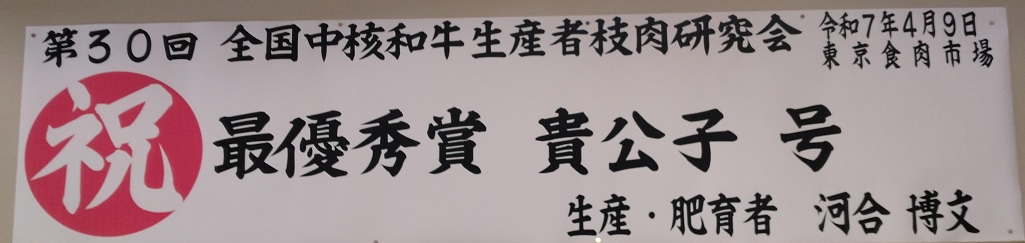 第30回 全国中核和牛生産者枝肉研究会
令和7年4月9日
東京食肉市場
祝
最優秀賞 貴公子 号
生産・肥育者 河合 博文